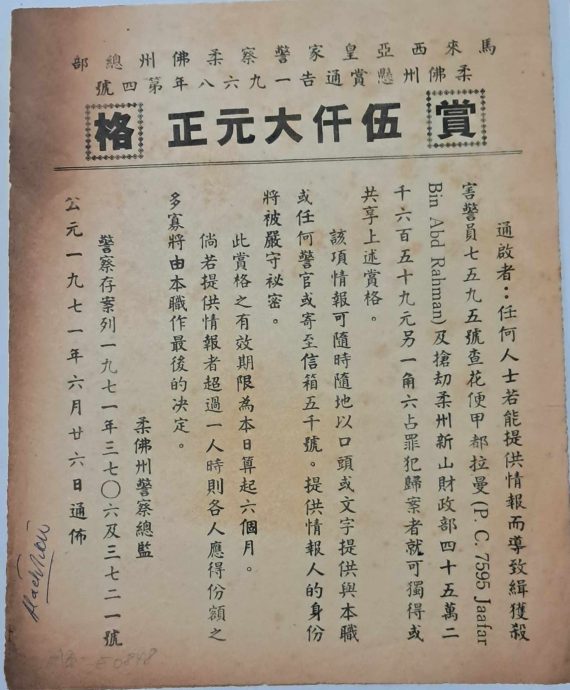 馬來西亞皇家警察柔佛州總部
柔佛州懸賞通告一九六八年第四號
賞 伍仟大元正 格
通啟者：任何人士若能提供情報而導致緝獲殺
害警員七五九五號查花便甲都拉曼(P. C. 7595 Jaafar
Bin Abd Rahman)及搶劫柔州新山財政部四十五萬二
千六百五十九元另一角六占罪犯歸案者就可獨得或
共享上述賞格。
該項情報可隨時隨地以口頭或文字提供與本職
或任何警官或寄至信箱五千號。提供情報人的身份
將被嚴守祕密。
此賞格之有效期限為本日算起六個月。
倘若提供情報者超過一人時則各人應得份額之
多寡將由本職作最後的決定。
柔佛州警察總監
警察存案列一九七一年三七〇六及三七二一號
公元一九七一年六月廿六日通佈